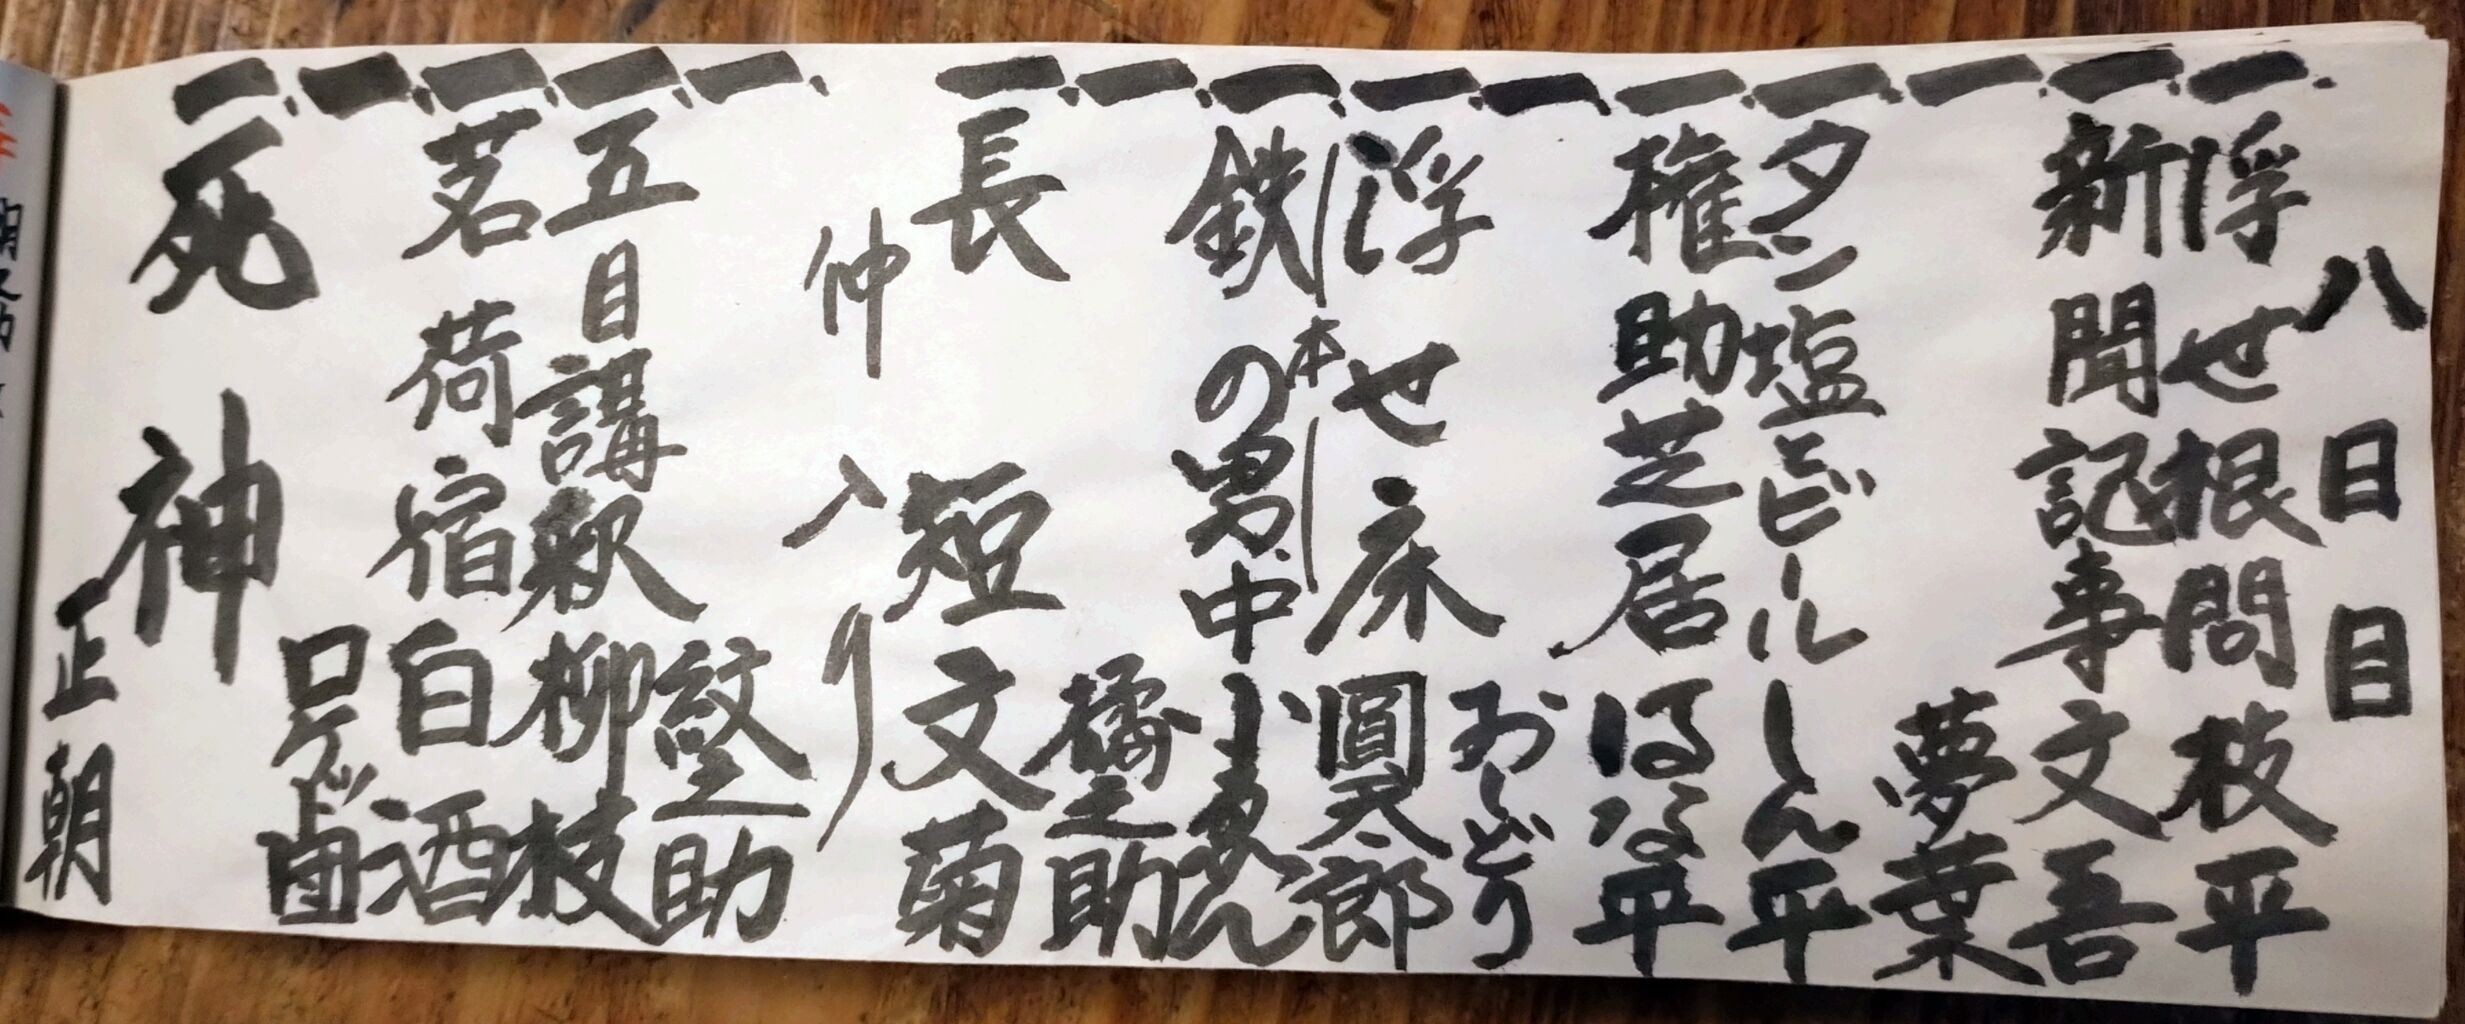 八日目
一、浮せ根問 枝平
一、新聞記事 文吾
一、夢葉
一、タン塩とビール しん平
一、権助芝居 はな平
一、おしどり
一、浮せ床 ―本― 圓太郎
一、鉄の男・中 小ゑん
一、橘之助
一、長短 文菊
仲入り
一、紋之助
一、五目講釈 柳枝
一、茗荷宿 白酒
一、ロケット團
一、死神 正朝